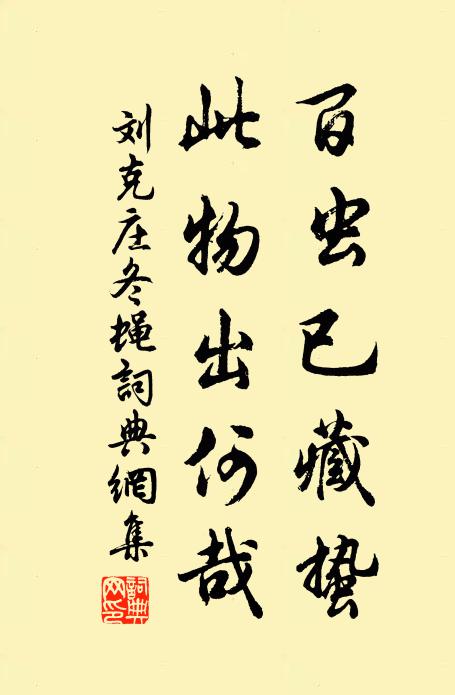 百虫已藏蛰
此物出何哉
刘克庄冬蝇詞典網集
詞典
网印